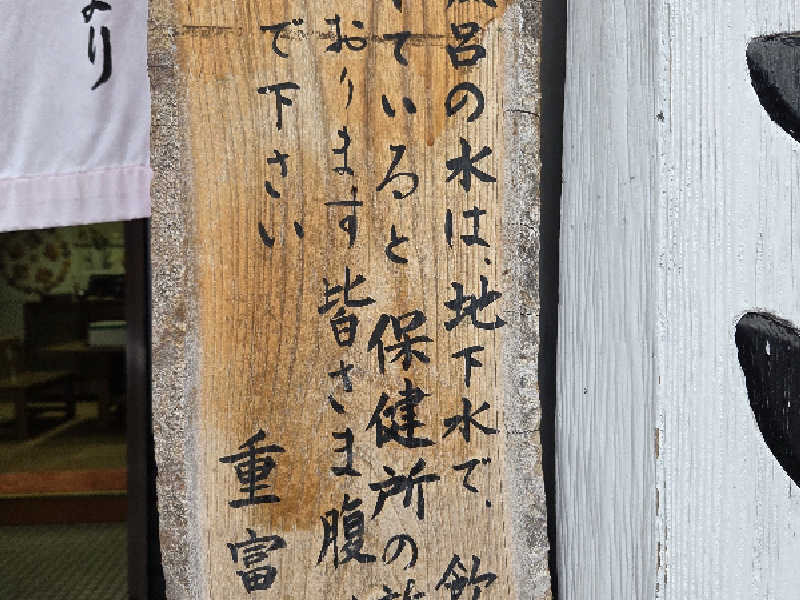 呂の水は、地下水で、飲
ていると 保健所の
おります 皆さま 腹
で下さい
重富
より